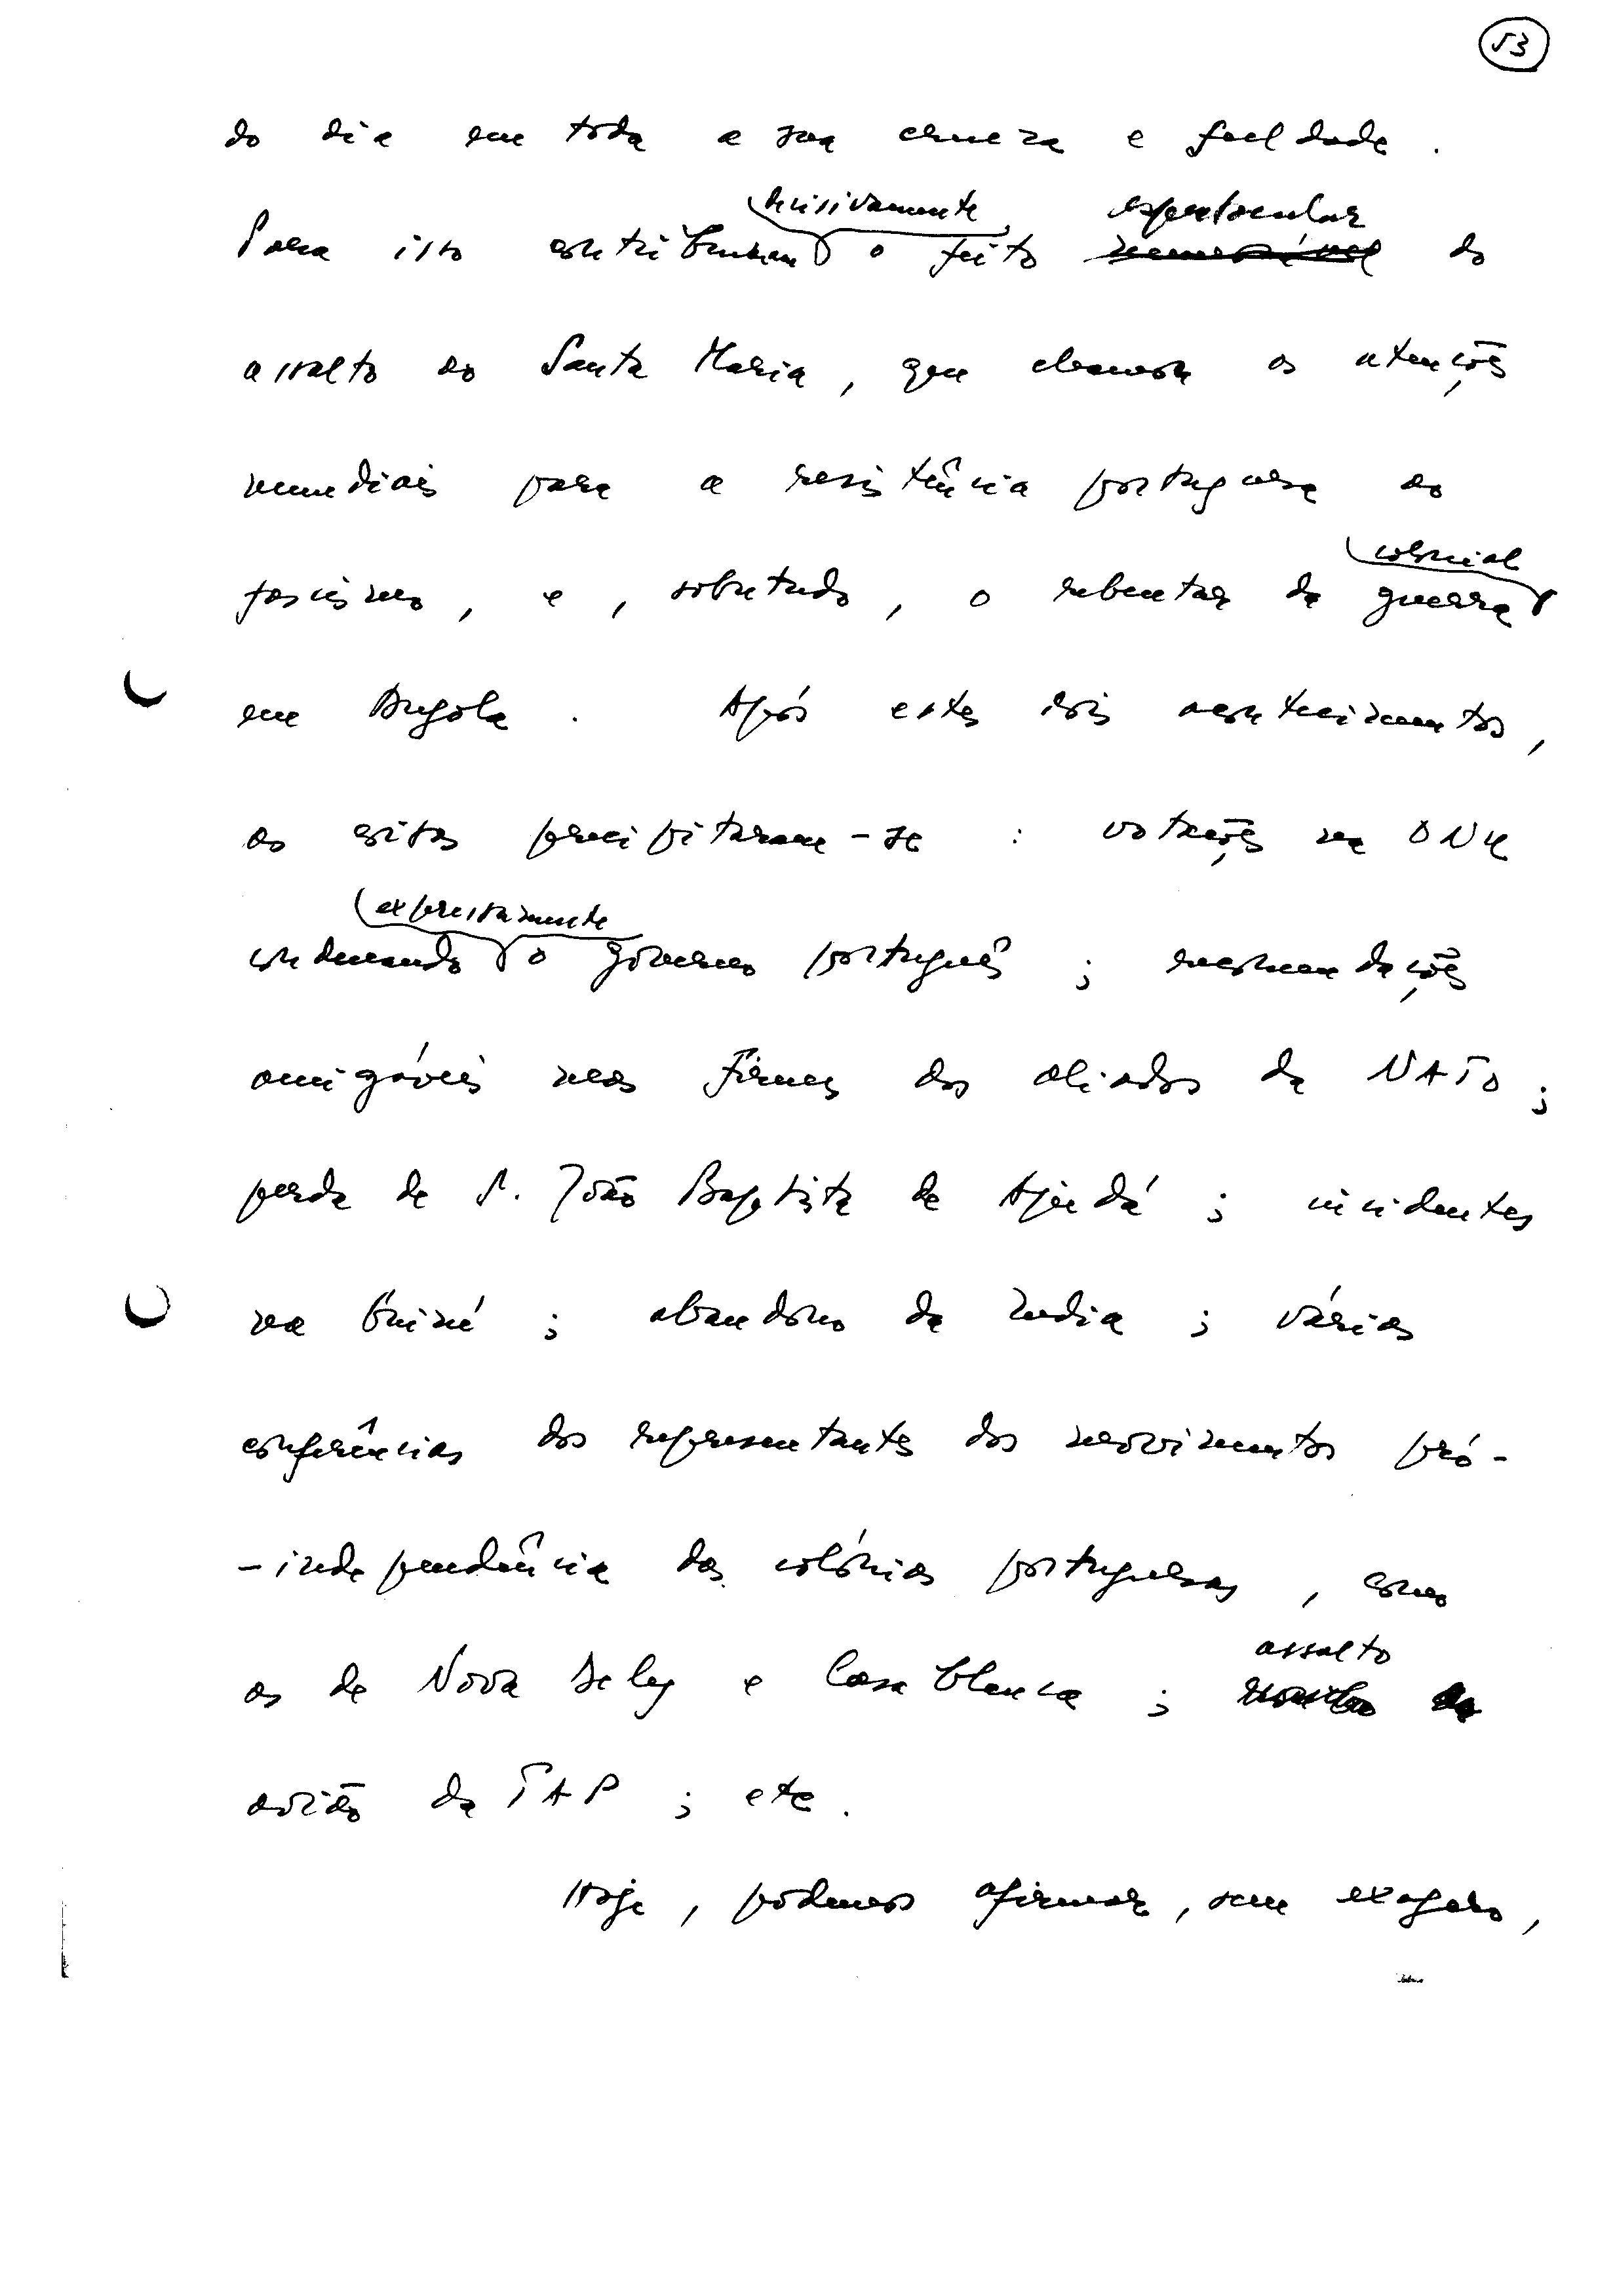 53
do dia em toda a sua crueza e fealdade.
decisivamente espectacular
Para isso contribuiram o feito memorável do
assalto ao Santa Maria, que chamou as atenções
mundiais para a resistência portuguesa ao
colonial
fascismo, e, sobretudo, o rebentar da guerra
em Angola. Após estes dois acontecimentos,
as coisas precipitaram-se: votações na ONU
expressamente
condenando o governo português; recomendações
amigáveis mas firmes dos aliados da NATO;
perda de S. João Baptista de Ajudá; incidentes
na Guiné; abandono da India; várias
conferências dos representantes dos movimentos pró-
-independência das colónias portuguesas, como
as de Nova Deley e Casablanca; 
assalto
avião da TAP; etc.
Hoje, podemos afirmar, sem exagero,